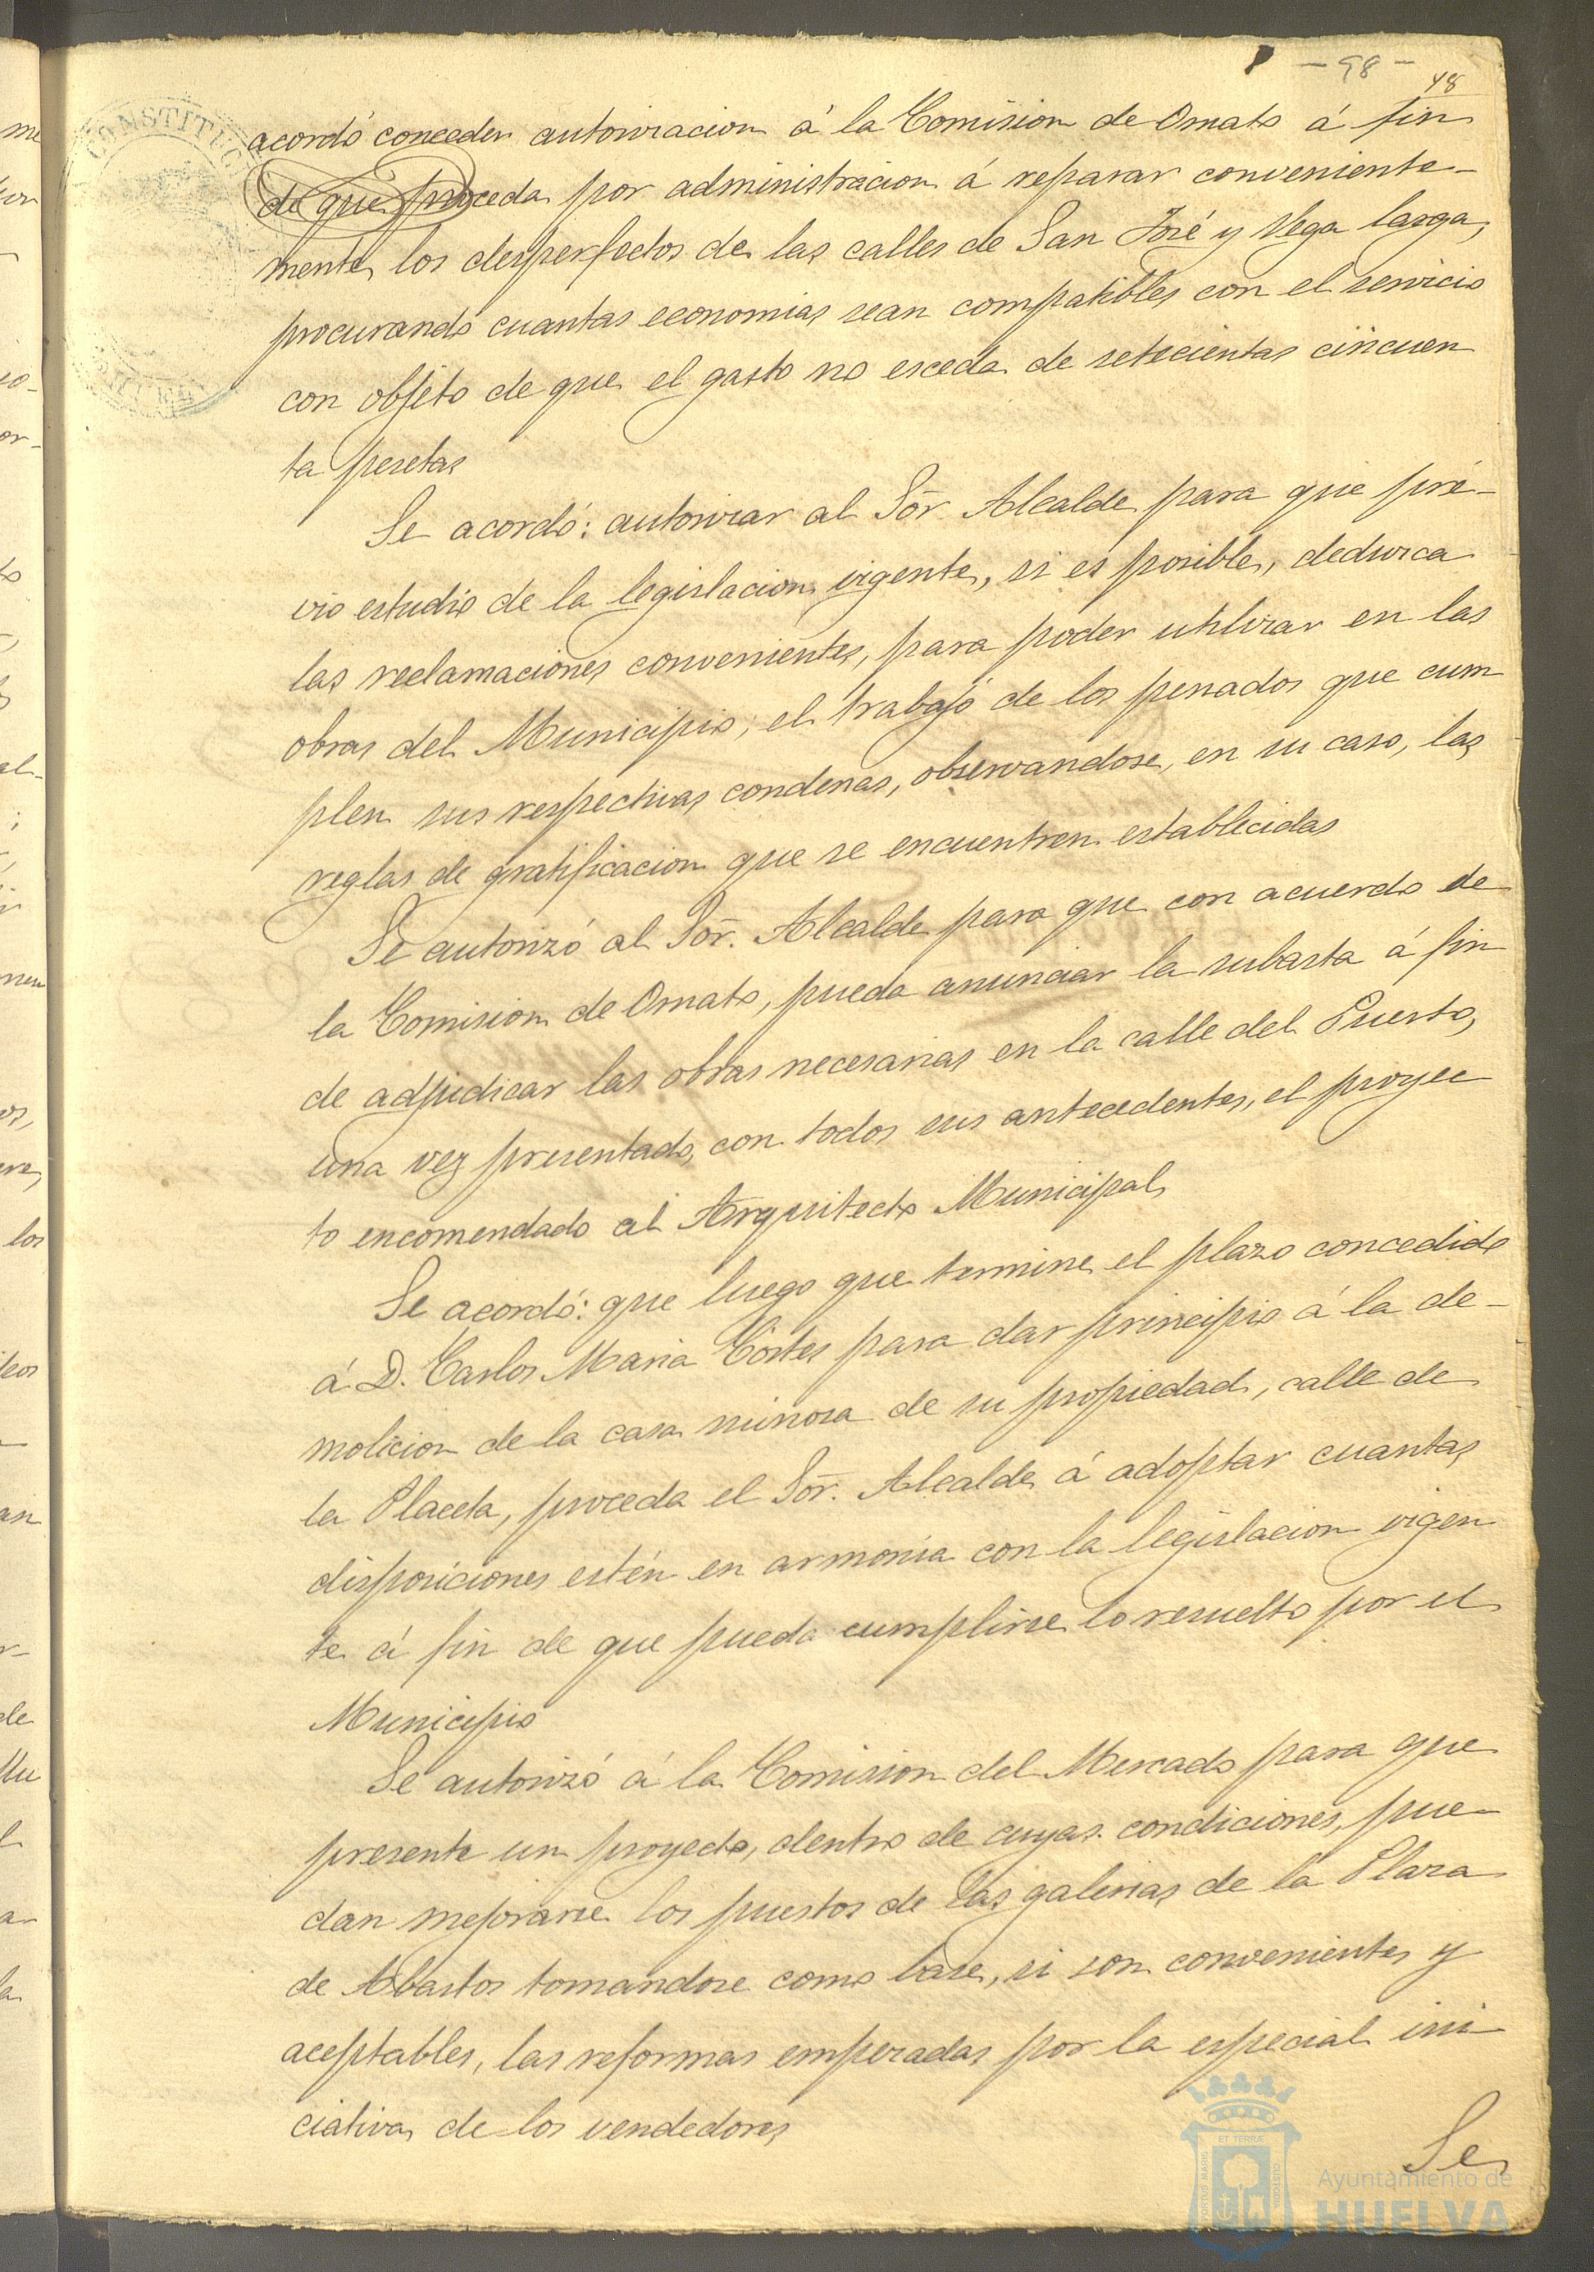 - 98 -
48
acordó conceder autorizacion á la Comision de Ornato á fin
de que proceda por administracion á reparar conveniente-
mente los desperfectos de las calles de San José y Vega larga,
procurando cuantas economias sean compatibles con el servicio
con objeto de que el gasto no esceda de setecientas cincuen
ta pesetas
Se acordó: autorizar al Sor Alcalde para que pré-
vio estudio de la legislacion vigente, si es posible, deduzca
las reclamaciones convenientes, para poder utilizar en las
obras del Municipio, el trabajo de los penados que cum
plen sus respectivas condenas, observandose, en su caso, las
reglas de gratificacion que se encuentren establecidas
Se autorizó al Sor. Alcalde para que con acuerdo de
la Comision de Ornato, pueda anunciar la subasta á fin
de adjudicar las obras necesarias en la calle del Puerto,
una vez presentado, con todos sus antecedentes, el proyec
to encomendado al Arquitecto Municipal
Se acordó: que luego que termine el plazo concedido
á D. Carlos Maria Córtes para dar principio á la de-
molicion de la casa ruinosa de su propiedad, calle de
la Placeta, proceda el Sor. Alcalde á adoptar cuantas
disposiciones estén en armonia con la legislacion vigen
te á fin de que pueda cumplirse lo resuelto por el
Municipio
Se autorizó á la Comision del Mercado para que
presente un proyecto, dentro de cuyas condiciones, pue-
dan mejorarse los puestos de las galerias de la Plaza
de Abastos tomandose como base, si son convenientes y
aceptables, las reformas empezadas por la especial ini-
ciativa de los vendedores
Se
CONSTITUC
Ayuntamiento de
HUELVA